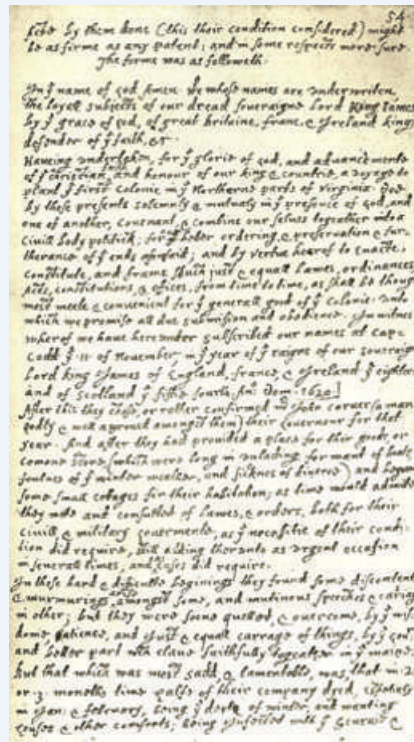 54
facte by them done (this their condition considered) might
be as firme as any patent; and in some respects more sure.
The forme was as followeth.
In yͤ name of god Amen. We whose names are underwriten,
the loyall subjects of our dread soveraigne Lord King James
by yͤ grace of god, of great Britaine, franc, & Ireland king,
defender of yͤ faith, &c
Haveing undertaken, for yͤ glorie of god, and advancemente
of yͤ christian and honour of our king & countrie, a voyage to
plant yͤ first colonie in yͤ Northerne parts of Virginia. Doe
by these presents solemnly & mutualy in yͤ presence of god, and
one of another, covenant, & combine our selves togeather into a
civill body politick; for yͤ better ordering, & preservation & fur-
therance of yͤ ends aforesaid; and by vertue hearof to enacte,
constitute, and frame shuch just & equall lawes, ordinances,
Acts, constitutions, & offices, from time to time, as shall be thought
most meete & convenient for yͤ generall good of yͤ colonie: unto
which we promise all due submission and obedience. In witnes
wherof we have hereunder subscribed our names at Cap-
Codd yͤ .11. of November, in yͤ year of yͤ raigne of our soveraigne
Lord king James of England, france, & Ireland yͤ eighteen
and of Scotland yͤ fiftie fourth. Anͦ: Dom. 1620.]
After this they chose, or rather confirmed mͬ John carver (a man
godly & well approved amongst them) their Governour for that
year. And after they had provided a place for their goods, or
comone store, (which were long in unlading for want of boats,
foulnes of yͤ winter weather, and sicknes of diverce) and begune
some small cottages for their habitation; as time would admitte
they mette and consulted of lawes, & orders, both for their
civill & military Govermente, as yͤ necessitie of their condi-
tion did require, still adding therunto as urgent occasion
in severall times, and cases did require.
In these hard & difficulte beginings they found some discontents
& murmurings amongst some, and mutinous speeches & cariages
in other; but they were soone quelled, & overcome, by yͤ wis-
dome, patience, and just & equall carrage of things, by yͤ Govͬ
and better part wͨʰ clave faithfully togeather in yͤ maine.
But that which was most sadd, & lamentable, was, that in 2.
or .3. moneths time halfe of their company dyed, espetialy
in Jan: & february, being yͤ depth of winter, and wanting
houses & other comforts; being Infected with yͤ scurvie &